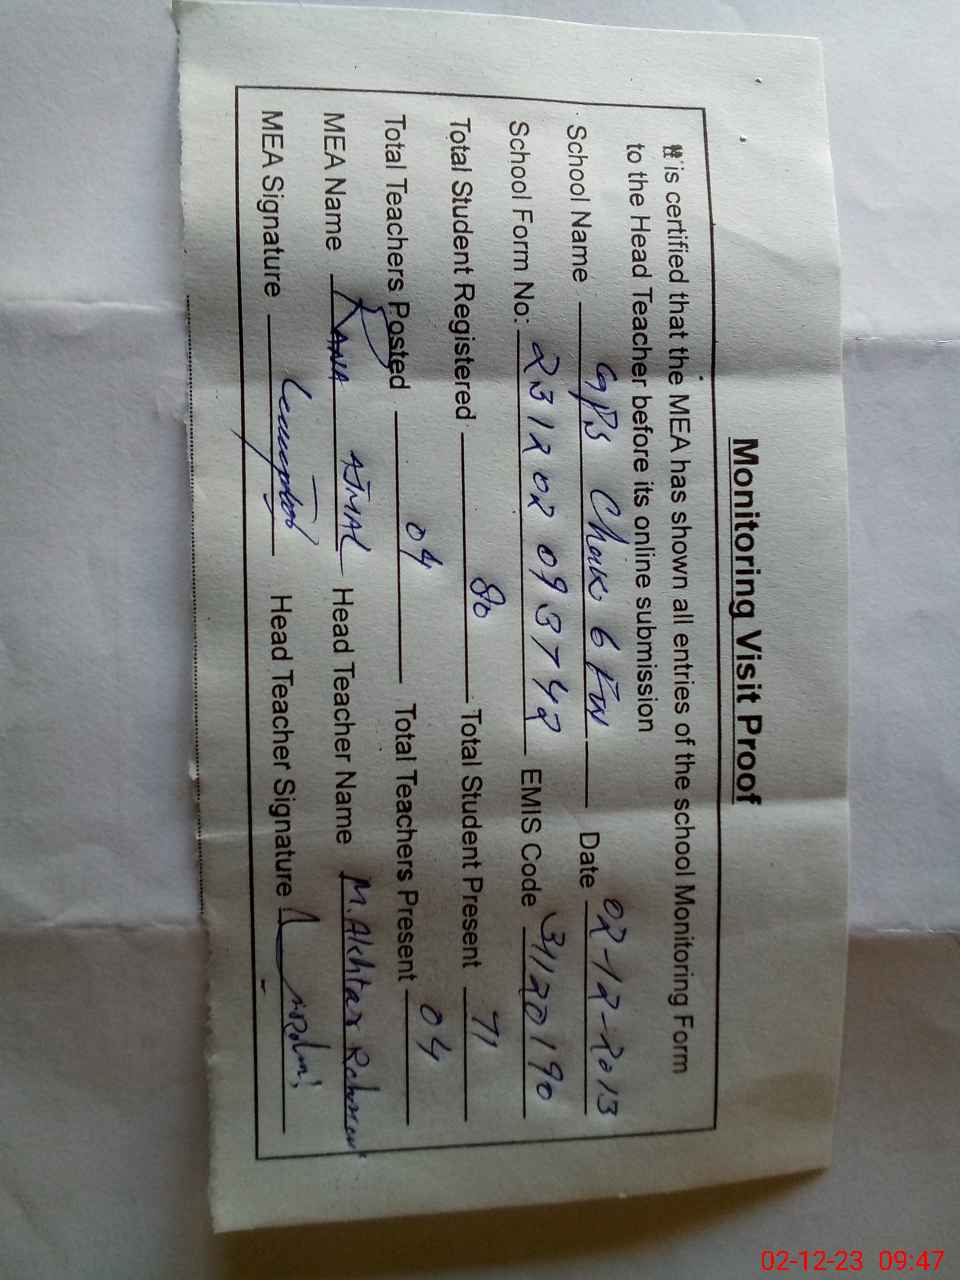 Monitoring Visit Proof
It is certified that the MEA has shown all entries of the school Monitoring Form
to the Head Teacher before its online submission
School Name GPS Chak 6 KW Date 02-12-2013
School Form No: 231202093742 EMIS Code 31120190
Total Student Registered 80 Total Student Present 71
Total Teachers Posted 04 Total Teachers Present 04
MEA Name RANA AJMAL Head Teacher Name M. Akhtar
MEA Signature Head Teacher Signature
02-12-23 09:47